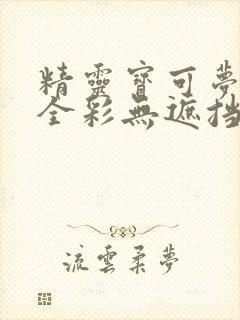 精靈寶可夢
全彩無遮挡
流雲柔夢